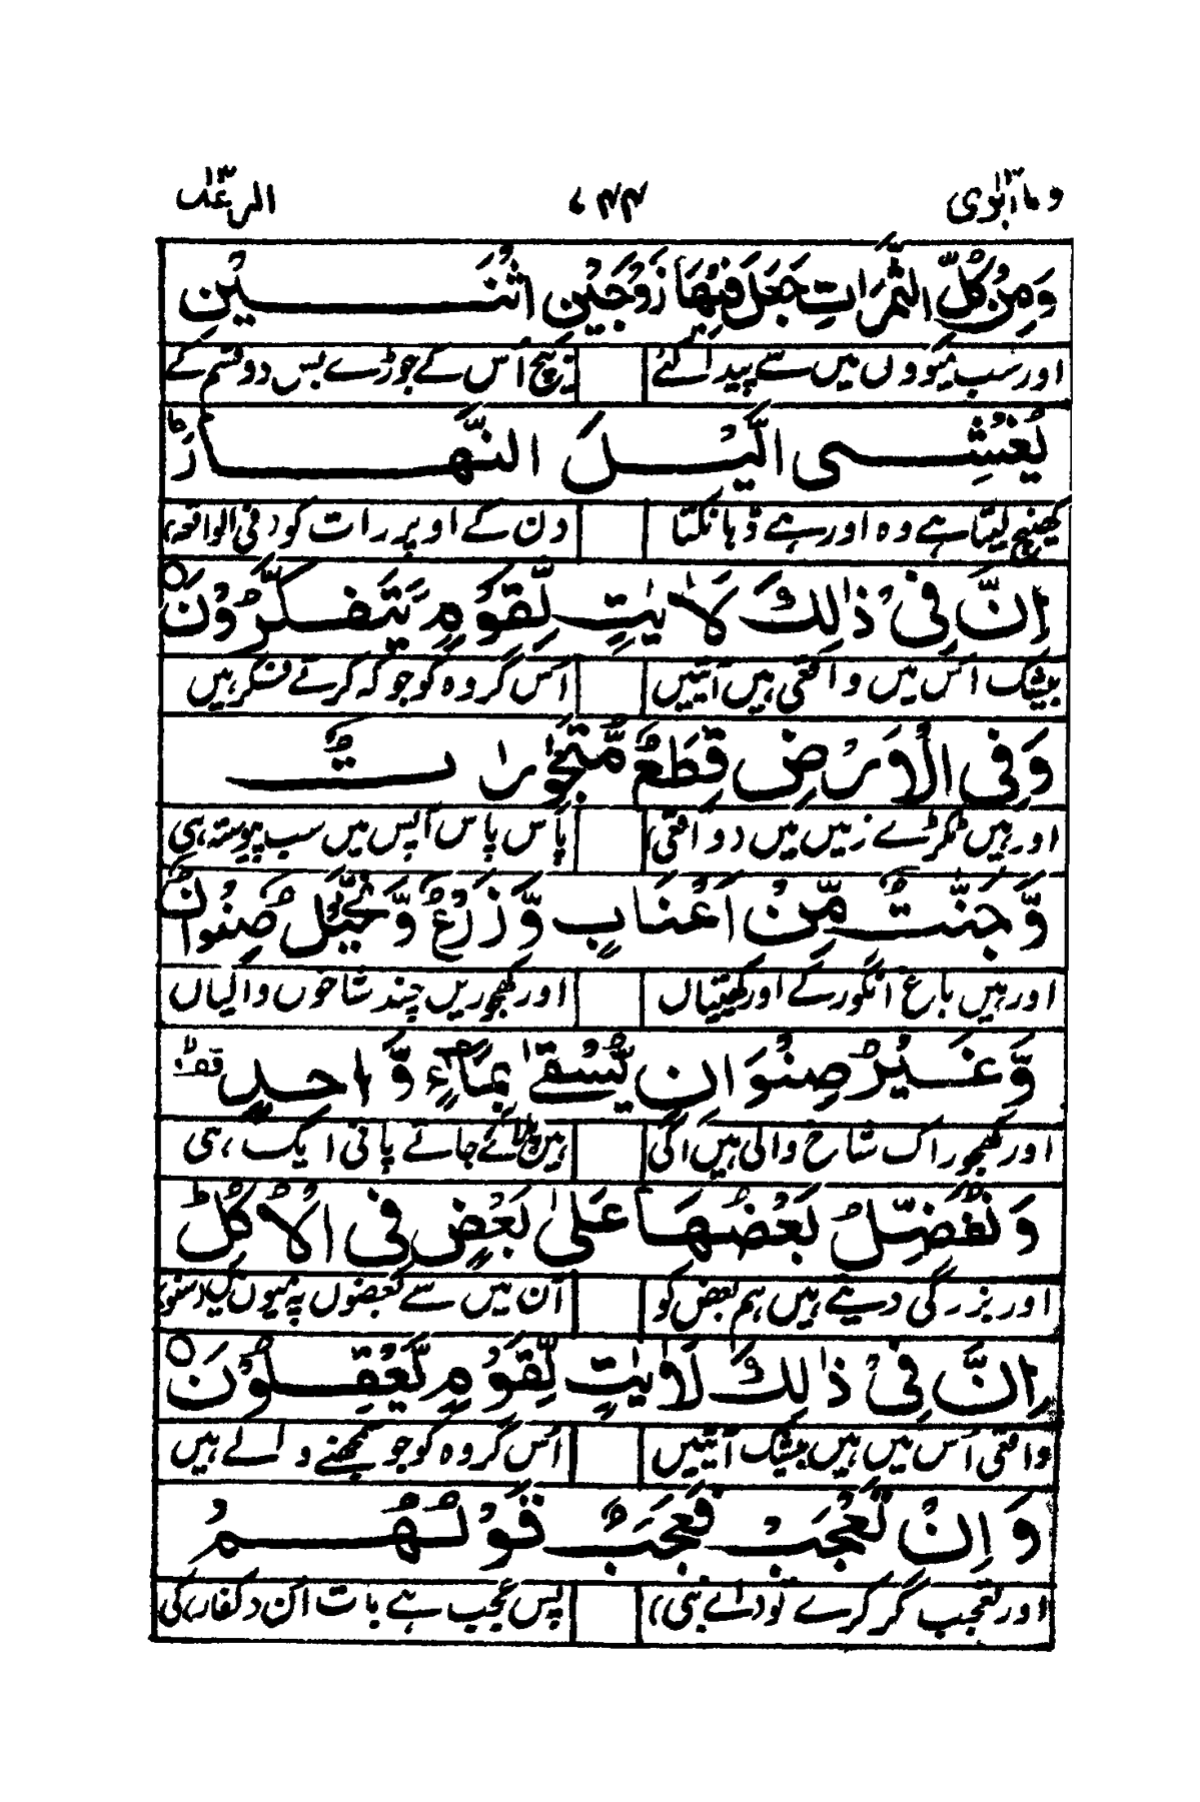 وما ابرئ ١٣ ٧٤٤ الرعد ١٣
وَمِنْ كُلِّ الثَّمَرَاتِ جَعَلَ فِيْهَا زَوْجَيْنِ اثْنَيْنِ
اور سب میووں میں سے پیدا کئے زیچ اُس کے جوڑے بس دو قسم کے
يُغْشِى الَّيْلَ النَّهَارَ ؕ
کھینچ لیتا ہے وہ اور ہے ڈہانکتا دن کے اوپر رات کو (فی الواقعہ)
اِنَّ فِىْ ذٰلِكَ لَاٰيٰتٍ لِّقَوْمٍ يَّتَفَكَّرُوْنَ ۝
بیشک اس میں واقعی ہیں آیتیں اُس گروہ کو جو کہ کرتے فکر ہیں
وَفِى الْاَرْضِ قِطَعٌ مُّتَجٰوِرٰتٌ
اور ہیں ٹکڑے زمیں میں (واقعی) پاس پاس آپس میں سب پیوستہ ہی
وَّجَنّٰتٌ مِّنْ اَعْنَابٍ وَّزَرْعٌ وَّنَخِيْلٌ صِنْوَانٌ
اور ہیں باغ انگور کے اور کھیتیاں اور کھجوریں چند شاخوں والیاں
وَّغَيْرُ صِنْوَانٍ يُّسْقٰى بِمَآءٍ وَّاحِدٍ قف
اور کھجور اک شاخ والی ہیں اگی ہیں پلائے جاتے پانی ایک ہی
وَنُفَضِّلُ بَعْضَهَا عَلٰى بَعْضٍ فِى الْاُكُلِ ؕ
اور بزرگی دیتے ہیں ہم بعض کو اُن میں سے بعضوں پہ میووں میں (سنو)
اِنَّ فِىْ ذٰلِكَ لَاٰيٰتٍ لِّقَوْمٍ يَّعْقِلُوْنَ ۝
واقعی اُس میں ہیں بیشک آیتیں اُس گروہ کو جو سمجھنے والے ہیں
وَاِنْ تَعْجَبْ فَعَجَبٌ قَوْلُهُمْ
اور تعجب گر کرے تو (اے نبی) پس عجب ہے بات اُن (کفار) کی